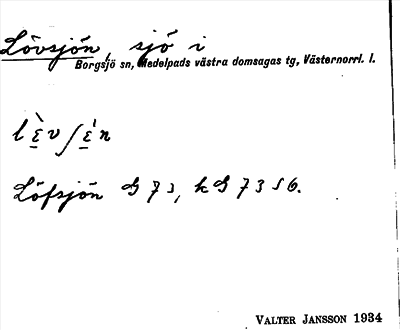 Lövsjön, sjö i
Borgsjö sn, Medelpads västra domsagas tg, Västernorrl. l.
lɛ̀vʃɛ́n
Löfsjön G 73, kG 73 S6.
VALTER JANSSON 1934